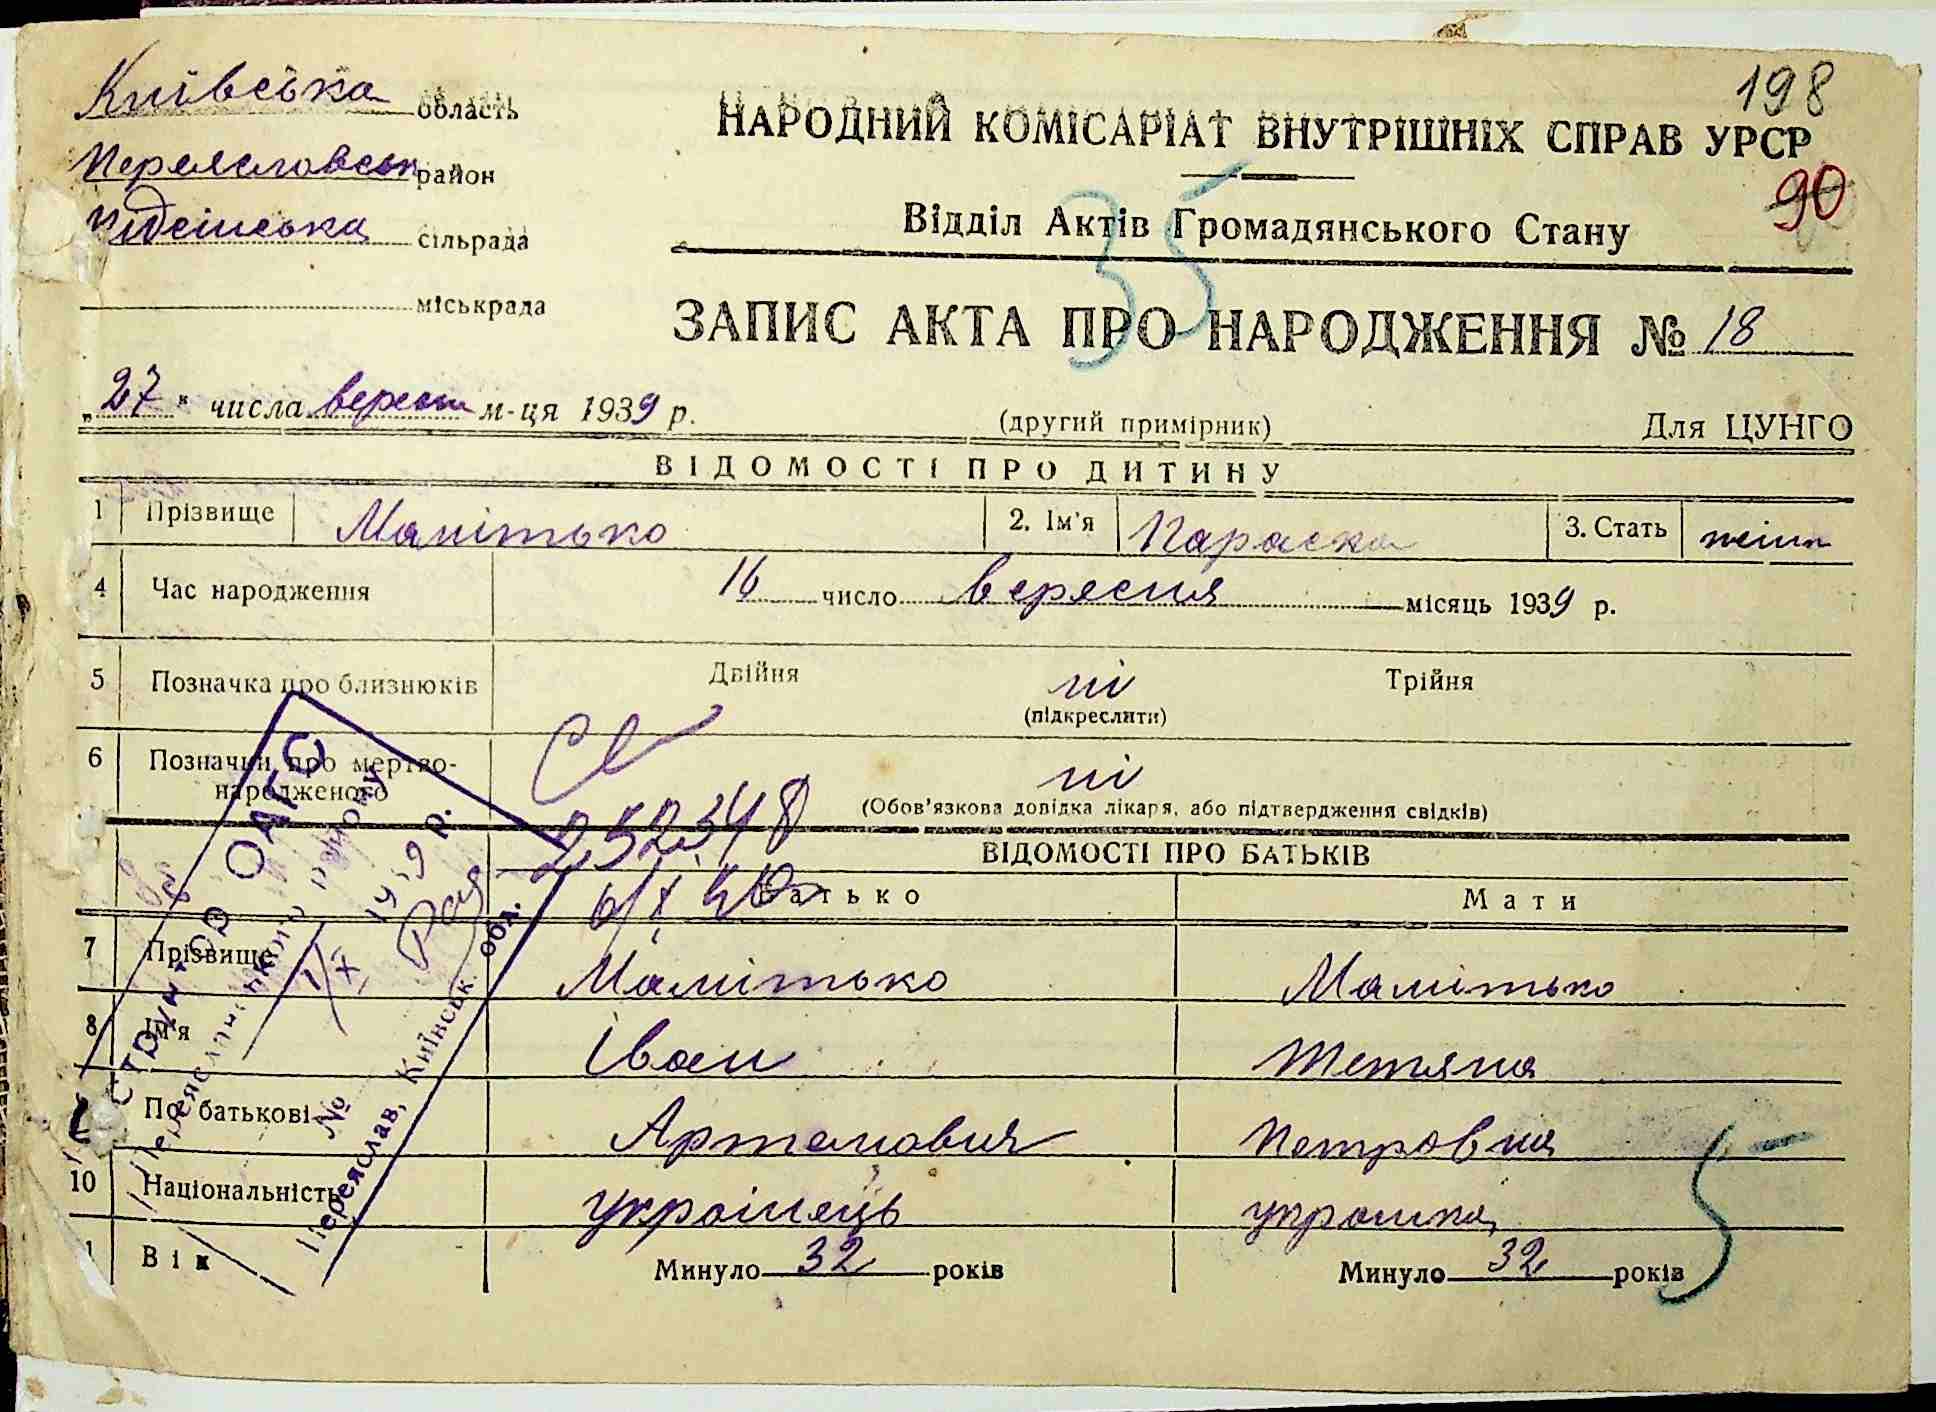 198
Київська область
НАРОДНИЙ КОМІСАРІАТ ВНУТРІШНІХ СПРАВ УРСР
Переяславськ район
90
35
Відділ Актів Громадянського Стану
сільрада
міськрада
ЗАПИС АКТА ПРО НАРОДЖЕННЯ № 18
„27" числа м-ця 1939 р.
(другий примірник)
Для ЦУНГО
ВІДОМОСТІ ПРО ДИТИНУ
1 Прізвище Мамітько 2. Ім'я Параска 3. Стать жіноч
4 Час народження 16 число вересня місяць 1939 р.
5 Позначка про близнюків Двійня ні Трійня
(підкреслити)
6 Позначки про мертво-
народженого ні
(Обов'язкова довідка лікаря, або підтвердження свідків)
252348
ВІДОМОСТІ ПРО БАТЬКІВ
Батько Мати
7 Прізвище Мамітько Мамітько
8 Ім'я Іван Тетяна
По батькові Артемович Петровна
10 Національність українець українка
Вік Минуло 32 років Минуло 32 років
5
ОАГС
району
№
Переяслав, Київськ. обл.